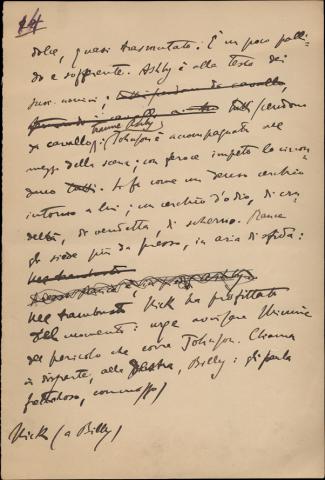 dolce, quasi trasmutato. È un poco palli-
do e sofferente. Ashby è alla testa dei
suoi uomini; tutti scendono da cavallo,
tutti scendono
(tranne Ashby)
da cavallo; Johnson è accompagnato nel
mezzo della scena; con feroce impeto lo circon-
dano tutti. Si fa come un denso cerchio
intorno a lui; un cerchio d'odio, di cru
deltà, di vendetta, di scherno. Rance
gli siede più da presso, in aria di sfida:
Nel trambusto
Nel trambusto Nick ha profittato
del momento: vuol avvisare Minnie
del pericolo che corre Johnson. Chiama
in disparte, alla destra, Billy: gli parla
frettoloso, commosso)
Nick (a Billy)